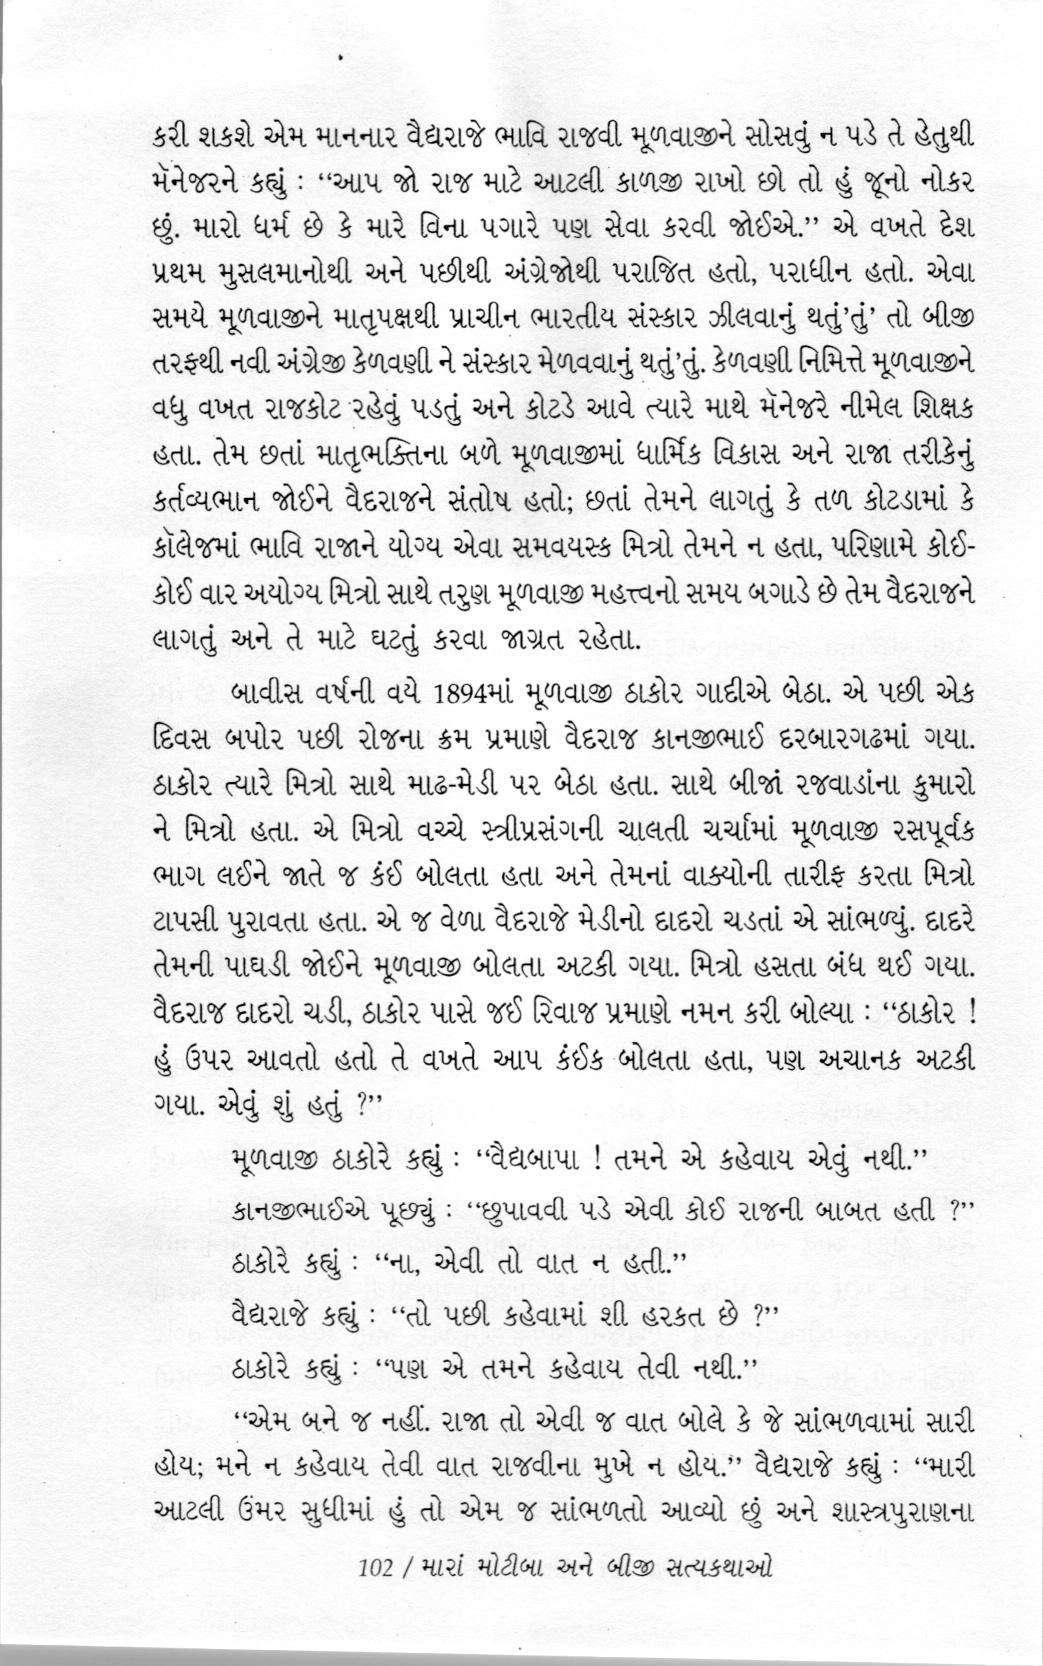 કરી શકશે એમ માનનાર વૈદ્યરાજે ભાવિ રાજવી મૂળવાજીને સોસવું ન પડે તે હેતુથી
મૅનેજરને કહ્યું : “આપ જો રાજ માટે આટલી કાળજી રાખો છો તો હું જૂનો નોકર
છું. મારો ધર્મ છે કે મારે વિના પગારે પણ સેવા કરવી જોઈએ.” એ વખતે દેશ
પ્રથમ મુસલમાનોથી અને પછીથી અંગ્રેજોથી પરાજિત હતો, પરાધીન હતો. એવા
સમયે મૂળવાજીને માતૃપક્ષથી પ્રાચીન ભારતીય સંસ્કાર ઝીલવાનું થતું’તું’ તો બીજી
તરફથી નવી અંગ્રેજી કેળવણી ને સંસ્કાર મેળવવાનું થતું’તું. કેળવણી નિમિત્તે મૂળવાજીને
વધુ વખત રાજકોટ રહેવું પડતું અને કોટડે આવે ત્યારે માથે મૅનેજરે નીમેલ શિક્ષક
હતા. તેમ છતાં માતૃભક્તિના બળે મૂળવાજીમાં ધાર્મિક વિકાસ અને રાજા તરીકેનું
કર્તવ્યભાન જોઈને વૈદરાજને સંતોષ હતો; છતાં તેમને લાગતું કે તળ કોટડામાં કે
કૉલેજમાં ભાવિ રાજાને યોગ્ય એવા સમવયસ્ક મિત્રો તેમને ન હતા, પરિણામે કોઈ-
કોઈ વાર અયોગ્ય મિત્રો સાથે તરુણ મૂળવાજી મહત્ત્વનો સમય બગાડે છે તેમ વૈદરાજને
લાગતું અને તે માટે ઘટતું કરવા જાગ્રત રહેતા.
બાવીસ વર્ષની વયે 1894માં મૂળવાજી ઠાકોર ગાદીએ બેઠા. એ પછી એક
દિવસ બપોર પછી રોજના ક્રમ પ્રમાણે વૈદરાજ કાનજીભાઈ દરબારગઢમાં ગયા.
ઠાકોર ત્યારે મિત્રો સાથે માઢ-મેડી પર બેઠા હતા. સાથે બીજાં રજવાડાંના કુમારો
ને મિત્રો હતા. એ મિત્રો વચ્ચે સ્ત્રીપ્રસંગની ચાલતી ચર્ચામાં મૂળવાજી રસપૂર્વક
ભાગ લઈને જાતે જ કંઈ બોલતા હતા અને તેમનાં વાક્યોની તારીફ કરતા મિત્રો
ટાપસી પુરાવતા હતા. એ જ વેળા વૈદરાજે મેડીનો દાદરો ચડતાં એ સાંભળ્યું. દાદરે
તેમની પાઘડી જોઈને મૂળવાજી બોલતા અટકી ગયા. મિત્રો હસતા બંધ થઈ ગયા.
વૈદરાજ દાદરો ચડી, ઠાકોર પાસે જઈ રિવાજ પ્રમાણે નમન કરી બોલ્યા : “ઠાકોર !
હું ઉપર આવતો હતો તે વખતે આપ કંઈક બોલતા હતા, પણ અચાનક અટકી
ગયા. એવું શું હતું ?”
મૂળવાજી ઠાકોરે કહ્યું : “વૈદ્યબાપા ! તમને એ કહેવાય એવું નથી.”
કાનજીભાઈએ પૂછ્યું : “છુપાવવી પડે એવી કોઈ રાજની બાબત હતી ?”
ઠાકોરે કહ્યું : “ના, એવી તો વાત ન હતી.”
વૈદ્યરાજે કહ્યું : “તો પછી કહેવામાં શી હરકત છે ?”
ઠાકોરે કહ્યું : “પણ એ તમને કહેવાય તેવી નથી.”
“એમ બને જ નહીં. રાજા તો એવી જ વાત બોલે કે જે સાંભળવામાં સારી
હોય; મને ન કહેવાય તેવી વાત રાજવીના મુખે ન હોય.” વૈદ્યરાજે કહ્યું : “મારી
આટલી ઉંમર સુધીમાં હું તો એમ જ સાંભળતો આવ્યો છું અને શાસ્ત્રપુરાણના
102 / મારાં મોટીબા અને બીજી સત્યકથાઓ